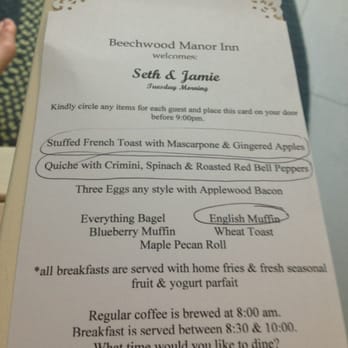 Beechwood Manor Inn
welcomes:
Seth & Jamie
Tuesday Morning
Kindly circle any items for each guest and place this card on your door
before 9:00pm.
Stuffed French Toast with Mascarpone & Gingered Apples
Quiche with Crimini, Spinach & Roasted Red Bell Peppers
Three Eggs any style with Applewood Bacon
Everything Bagel English Muffin
Blueberry Muffin Wheat Toast
Maple Pecan Roll
*all breakfasts are served with home fries & fresh seasonal
fruit & yogurt parfait
Regular coffee is brewed at 8:00 am.
Breakfast is served between 8:30 & 10:00.
What time would you like to dine?